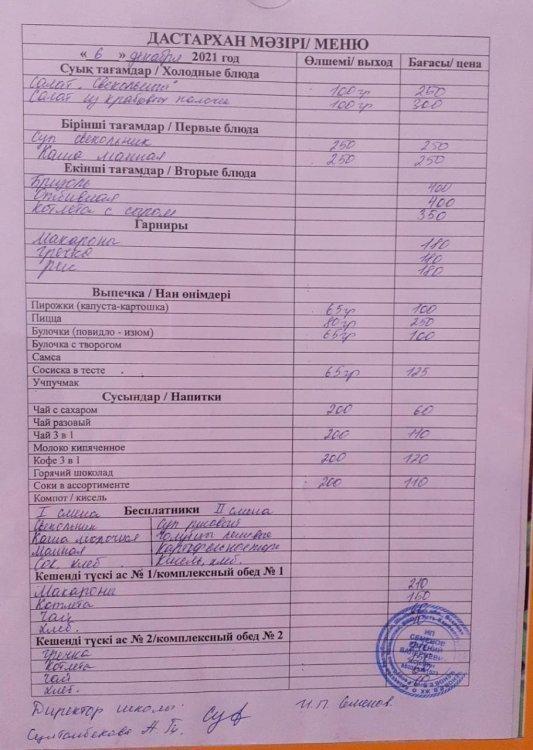 ДАСТАРХАН МӘЗІРІ/ МЕНЮ
« 6 » декабря 2021 год Өлшемі/ выход Бағасы/ цена
Суық тағамдар / Холодные блюда
Салат "Свекольный" 100гр 250
Салат из крабовых палочек 100гр 300
Бірінші тағамдар / Первые блюда
Суп свекольник 250 250
Каша манная 250 250
Екінші тағамдар / Вторые блюда
Бризоль 400
Отбивная 400
Котлета с сыром 350
Гарниры
Макароны 180
Гречка 180
Рис 180
Выпечка / Нан өнімдері
Пирожки (капуста-картошка) 65гр 100
Пицца 80гр 250
Булочки (повидло - изюм) 65гр 100
Булочка с творогом
Самса
Сосиска в тесте 65гр 125
Учпучмак
Сусындар / Напитки
Чай с сахаром 200 60
Чай разовый
Чай 3 в 1 200 110
Молоко кипяченное
Кофе 3 в 1 200 120
Горячий шоколад
Соки в ассортименте 200 110
Компот / кисель
I смена Бесплатники II смена
Свекольник Суп рисовый
Каша молочная
Манная
Сок, хлеб Кисель, хлеб.
Кешенді түскі ас № 1/комплексный обед № 1
Макароны 210
Котлета 160
Чай
Хлеб.
Кешенді түскі ас № 2/комплексный обед № 2
Гречка
Котлета
Чай
Хлеб.
ИП
СЕМЕНОВ
ЕВГЕНИЙ
Директор школы И.П. Семенов.